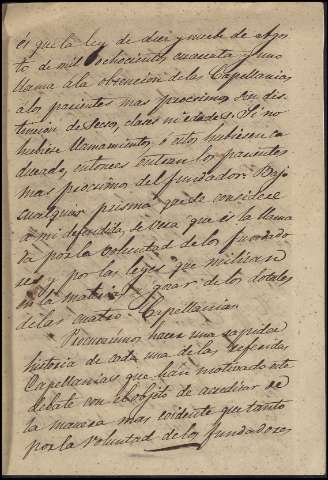 és que la ley de diez y nueve de Agos
to de mil ochocientos cuarenta y uno
llama á la obtencion de las Capellanias
a los parientes mas procsimos sin dis
tincion de secso, clases ni edades. Si no
hubiese llamamientos, ó estos hubiesen ca
ducado, entonces entran los parientes
mas procsimos del fundador. Bajo
cualquier prisma que se considere
a mi defendida, se verá que és la llama
da por la voluntad de los fundado
res y por las leyes que militan
en la materia, a gozar de los dotales
de las cuatro Capellanias.
Procuremos hacer una rapida
historia de cada una de las referidas
Capellanias que han motivado este
debate con el objeto de acreditar de
la manera mas evidente que tanto
por la voluntad de los fundadores